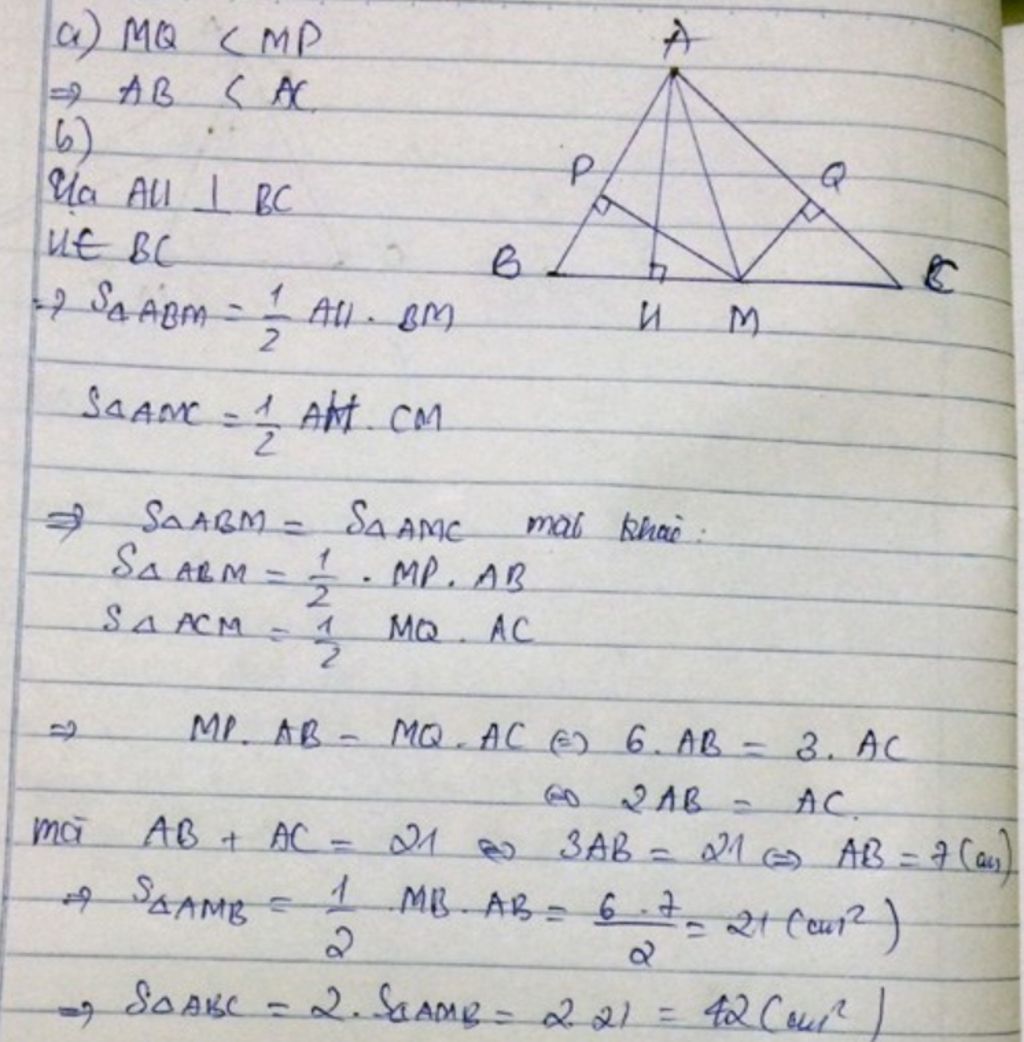 a) MQ < MP
⇒ AB < AC
b)
Kẻ AH ⊥ BC
H ∈ BC
⇒ S△ABM = 1/2 AH . BM
S△AMC = 1/2 AH . CM
⇒ S△ABM = S△AMC mặt khác :
S△ABM = 1/2 . MP . AB
S△ACM = 1/2 MQ . AC
⇒ MP . AB = MQ . AC ⇔ 6 . AB = 3 . AC
⇔ 2AB = AC.
mà AB + AC = 21 ⇔ 3AB = 21 ⇔ AB = 7 (cm)
⇒ S△AMB = 1/2 . MB . AB = 6 . 7/2 = 21 (cm²)
⇒ S△ABC = 2 . S△AMB = 2 . 21 = 42 (cm²)
A
P
Q
B
C
H
M